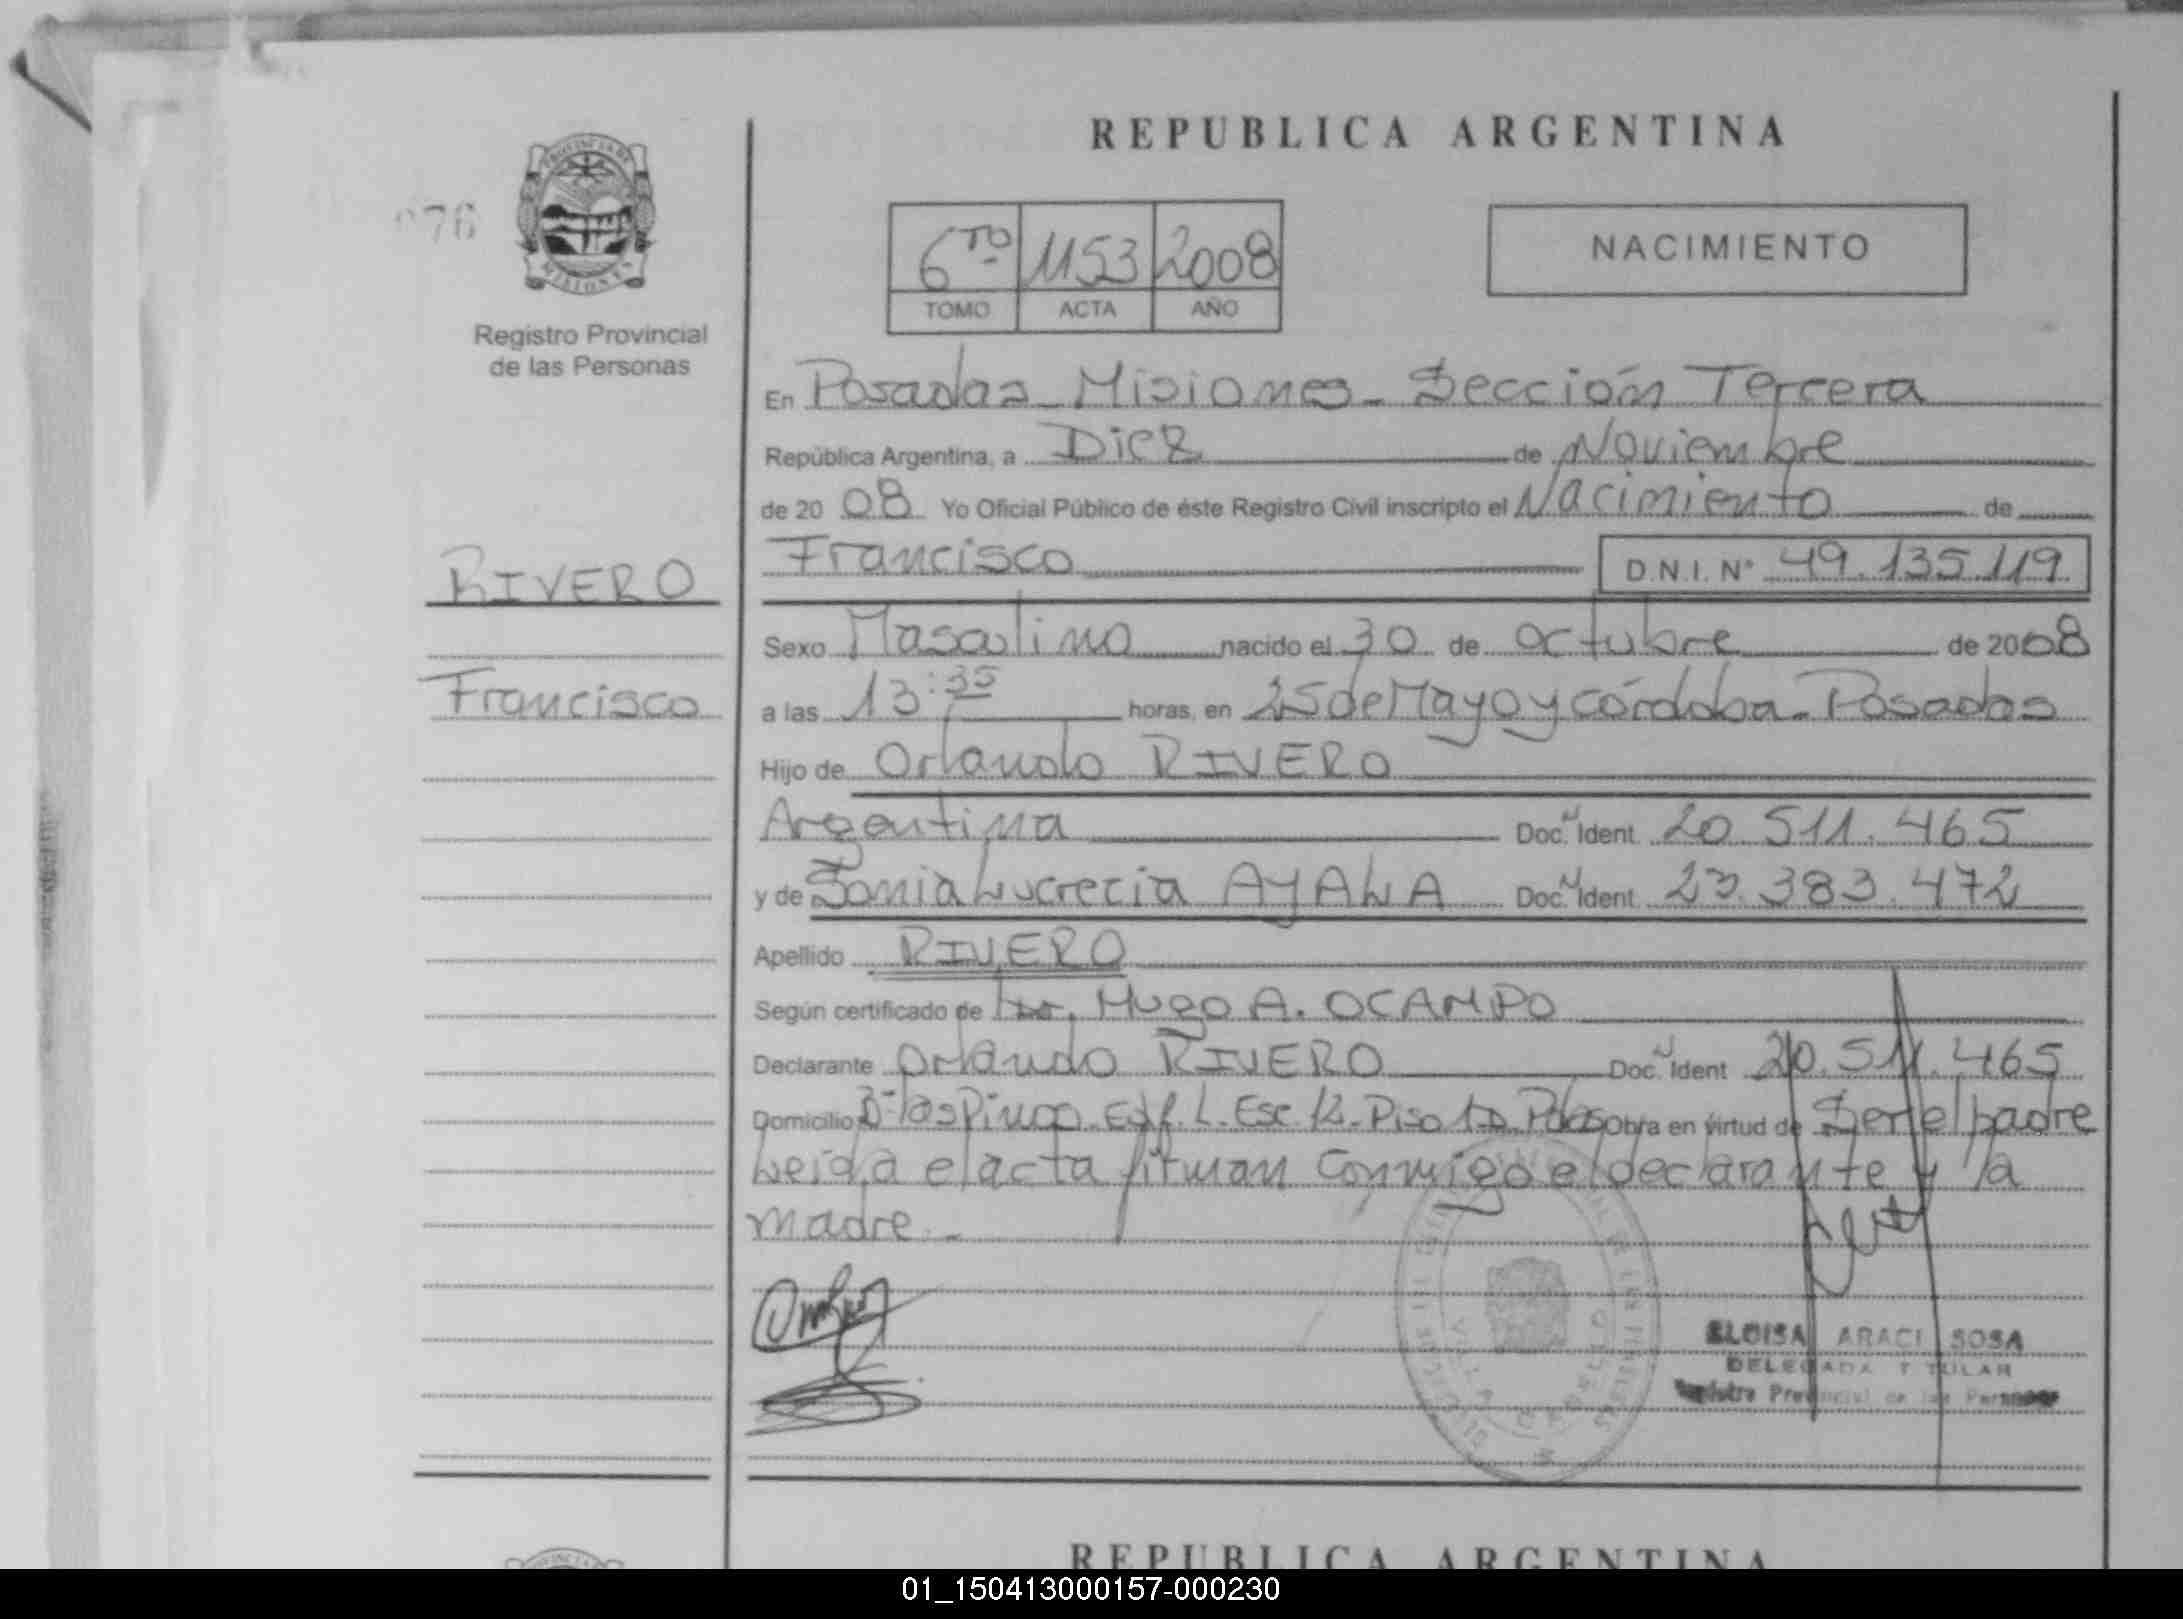 REPUBLICA ARGENTINA
076
PROVINCIA DE
MISIONES
6TO 1153 2008
TOMO ACTA AÑO
NACIMIENTO
Registro Provincial
de las Personas
En Posadas - Misiones - Sección Tercera
República Argentina, a Diez de Noviembre
de 20 08 Yo Oficial Público de éste Registro Civil inscripto el Nacimiento de
Francisco D.N.I. Nº 49.135.119
RIVERO
Sexo Masculino nacido el 30 de octubre de 2008
Francisco
a las 13:35 horas, en 25 de Mayo y córdoba - Posadas
Hijo de Orlando RIVERO
Argentina Doc. Ident. 20.511.465
y de Sonia Lucrecia AYALA Doc. Ident. 23.383.472
Apellido RIVERO
Según certificado de Dr. Hugo A. OCAMPO
Declarante Orlando RIVERO Doc. Ident 20.511.465
Domicilio Bº las Pinos. Edf. L. Esc. 12 - Piso 1 Pdas Obra en virtud de Ser el padre
Leida el acta firman conmigo el declarante y la
madre. -
ELOISA ARACI SOSA
DELEGADA TITULAR
Registro Provincial de las Personas
REPUBLICA ARGENTINA
01_150413000157-000230